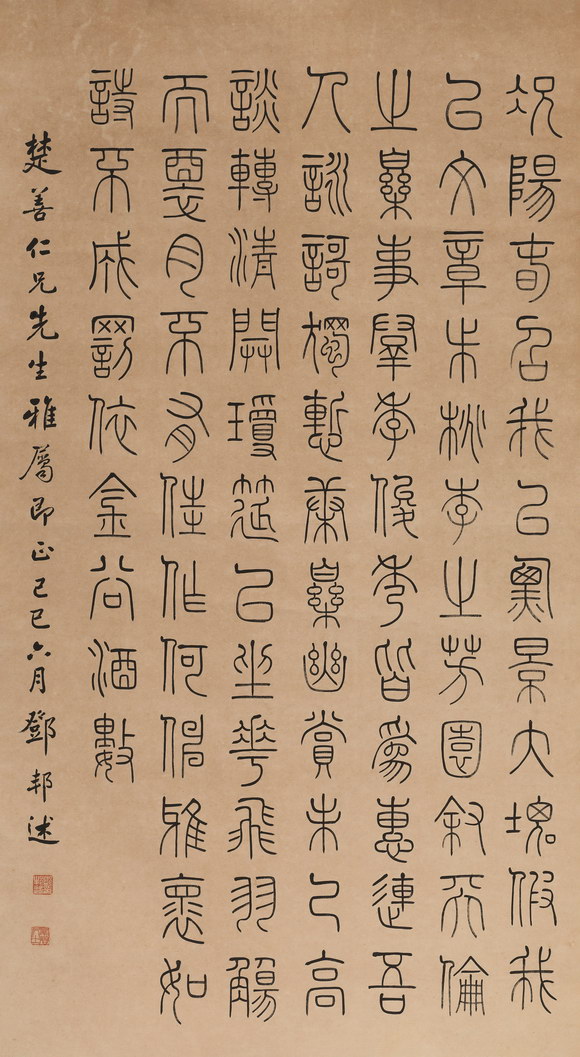 況陽春召我以煙景大塊假我
以文章桃李之芳園敘天倫
之樂事羣季俊秀皆為惠連吾
人詠歌獨慙康樂幽賞未已高
談轉清開瓊筵以坐花飛羽觴
而月不有佳作何伸雅褱如
詩不成罰依金谷酒數
楚善仁兄先生雅屬即正己巳六月鄧邦述